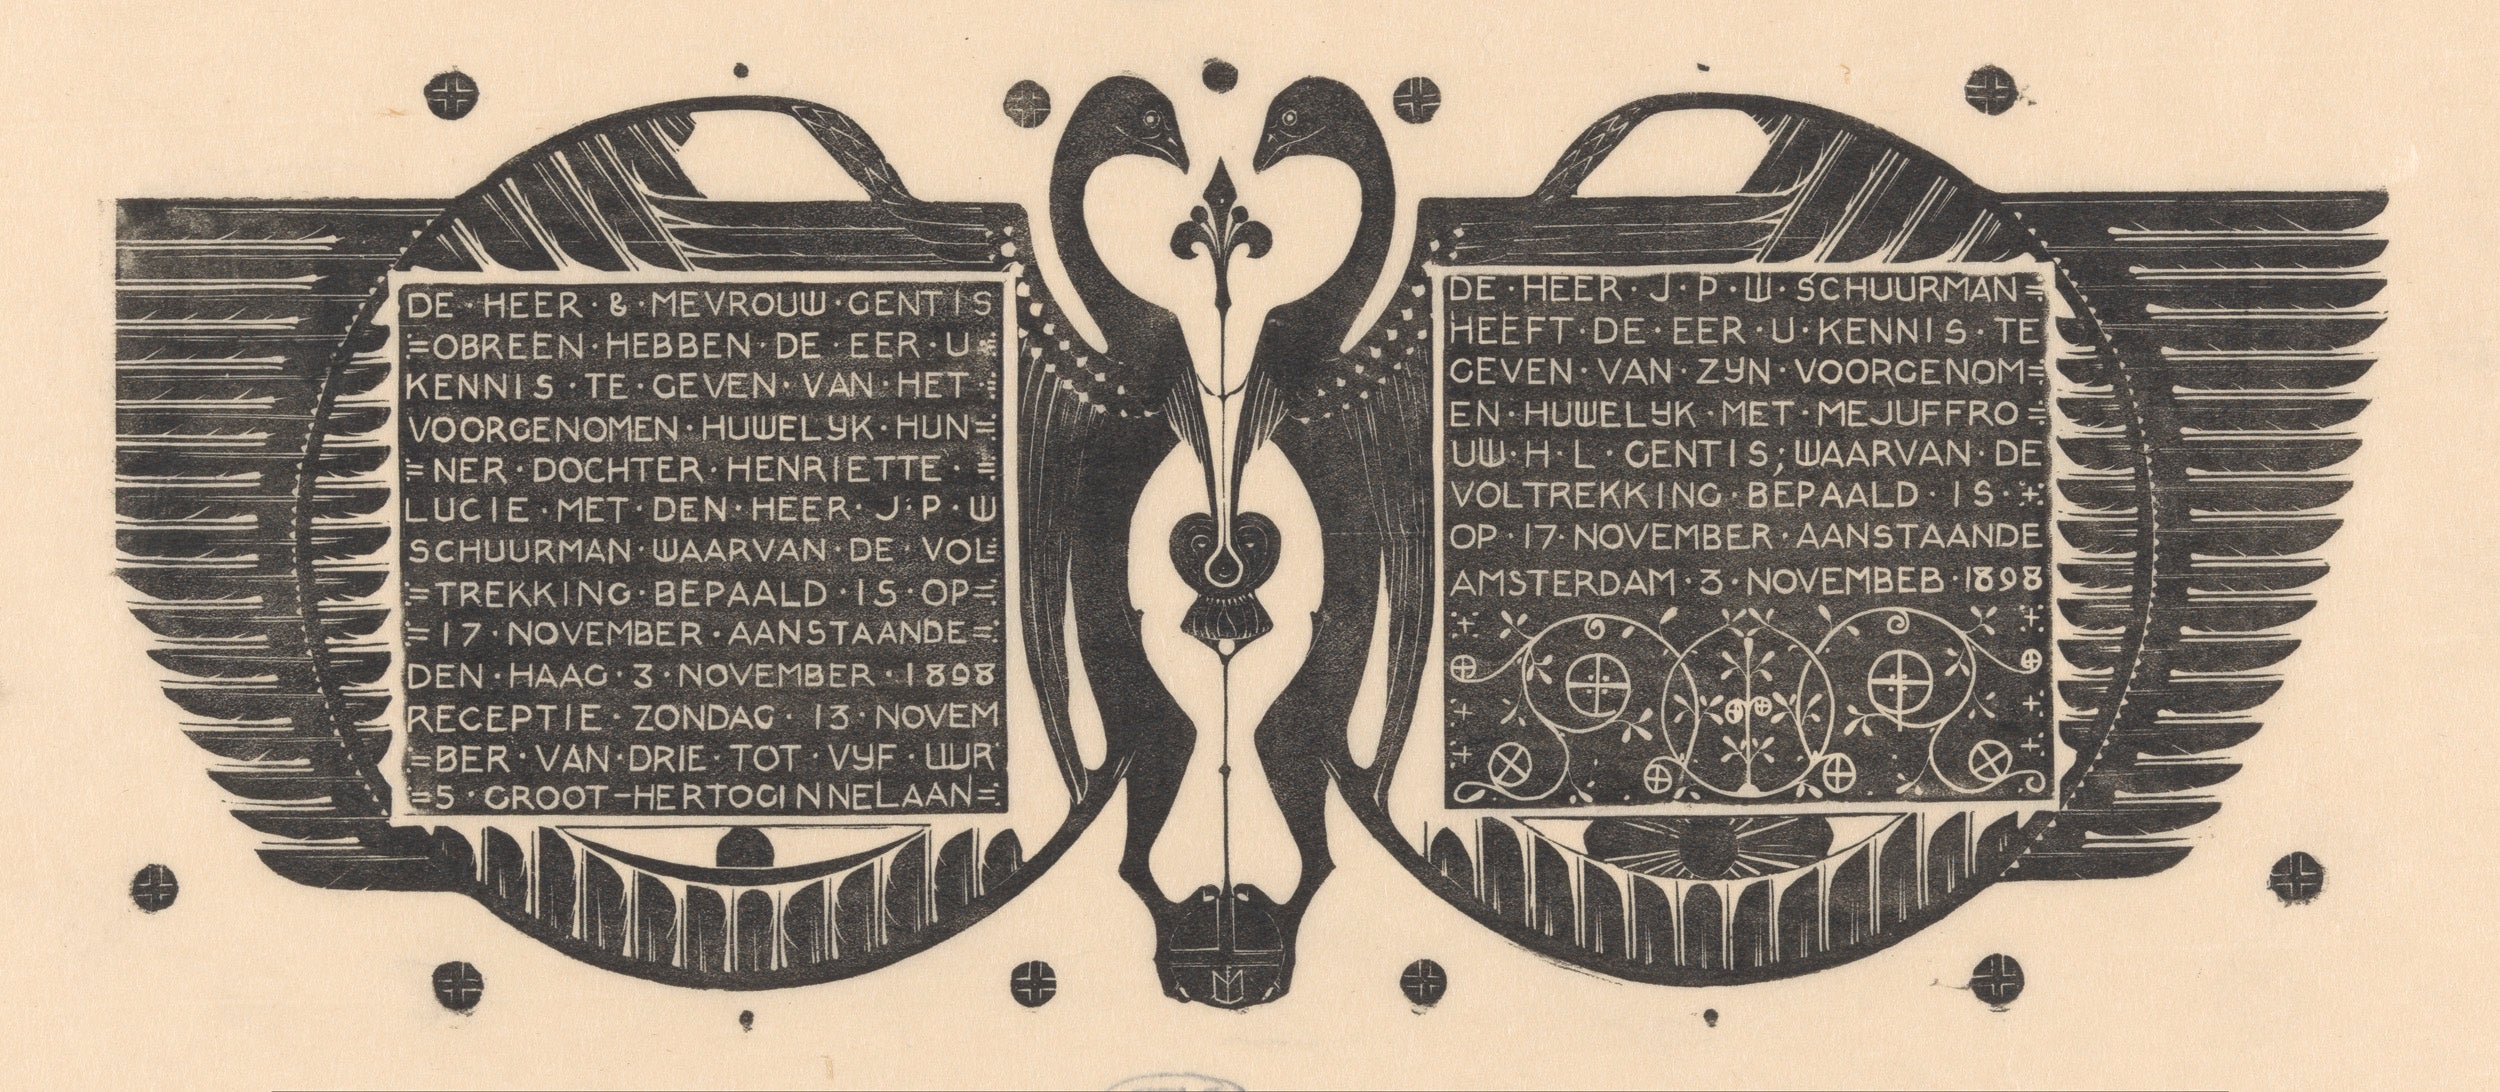 DE · HEER · & · MEVROUW · GENTIS
OBREEN · HEBBEN · DE · EER · U
KENNIS · TE · GEVEN · VAN · HET ·
VOORGENOMEN · HUWELYK · HUN
NER · DOCHTER · HENRIETTE ·
LUCIE · MET · DEN · HEER · J · P · W
SCHUURMAN · WAARVAN · DE · VOL
TREKKING · BEPAALD · IS · OP
17 · NOVEMBER · AANSTAANDE
DEN · HAAG · 3 · NOVEMBER · 1898
RECEPTIE · ZONDAG · 13 · NOVEM
BER · VAN · DRIE · TOT · VYF · UUR
5 · GROOT-HERTOGINNELAAN
DE · HEER · J · P · W · SCHUURMAN
HEEFT · DE · EER · U · KENNIS · TE
GEVEN · VAN · ZYN · VOORGENOM
EN · HUWELYK · MET · MEJUFFRO
UW · H · L · GENTIS; WAARVAN · DE
VOLTREKKING · BEPAALD · IS ·
OP · 17 · NOVEMBER · AANSTAANDE
AMSTERDAM · 3 · NOVEMBEB · 1898